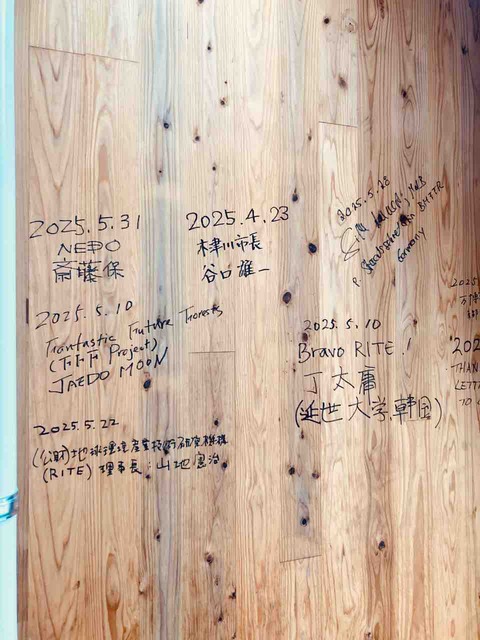 2025.5.31
NEDO
斎藤保
2025.4.23
木津川市長
谷口雄一
2025.5.28
Germany
2025.5.10
Fantastic Future Forests
(FFF Project)
JAEDO MOON
2025.5.10
Bravo RITE!
丁太庸
(延世大学, 韓国)
2025.5.22
(公財)地球環境産業技術研究機構
(RITE) 理事長:山地憲治